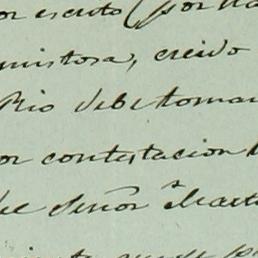 or escrito (por ha
mistosa, creido
Rio debe tomar
or contestacion
del Señor Marti